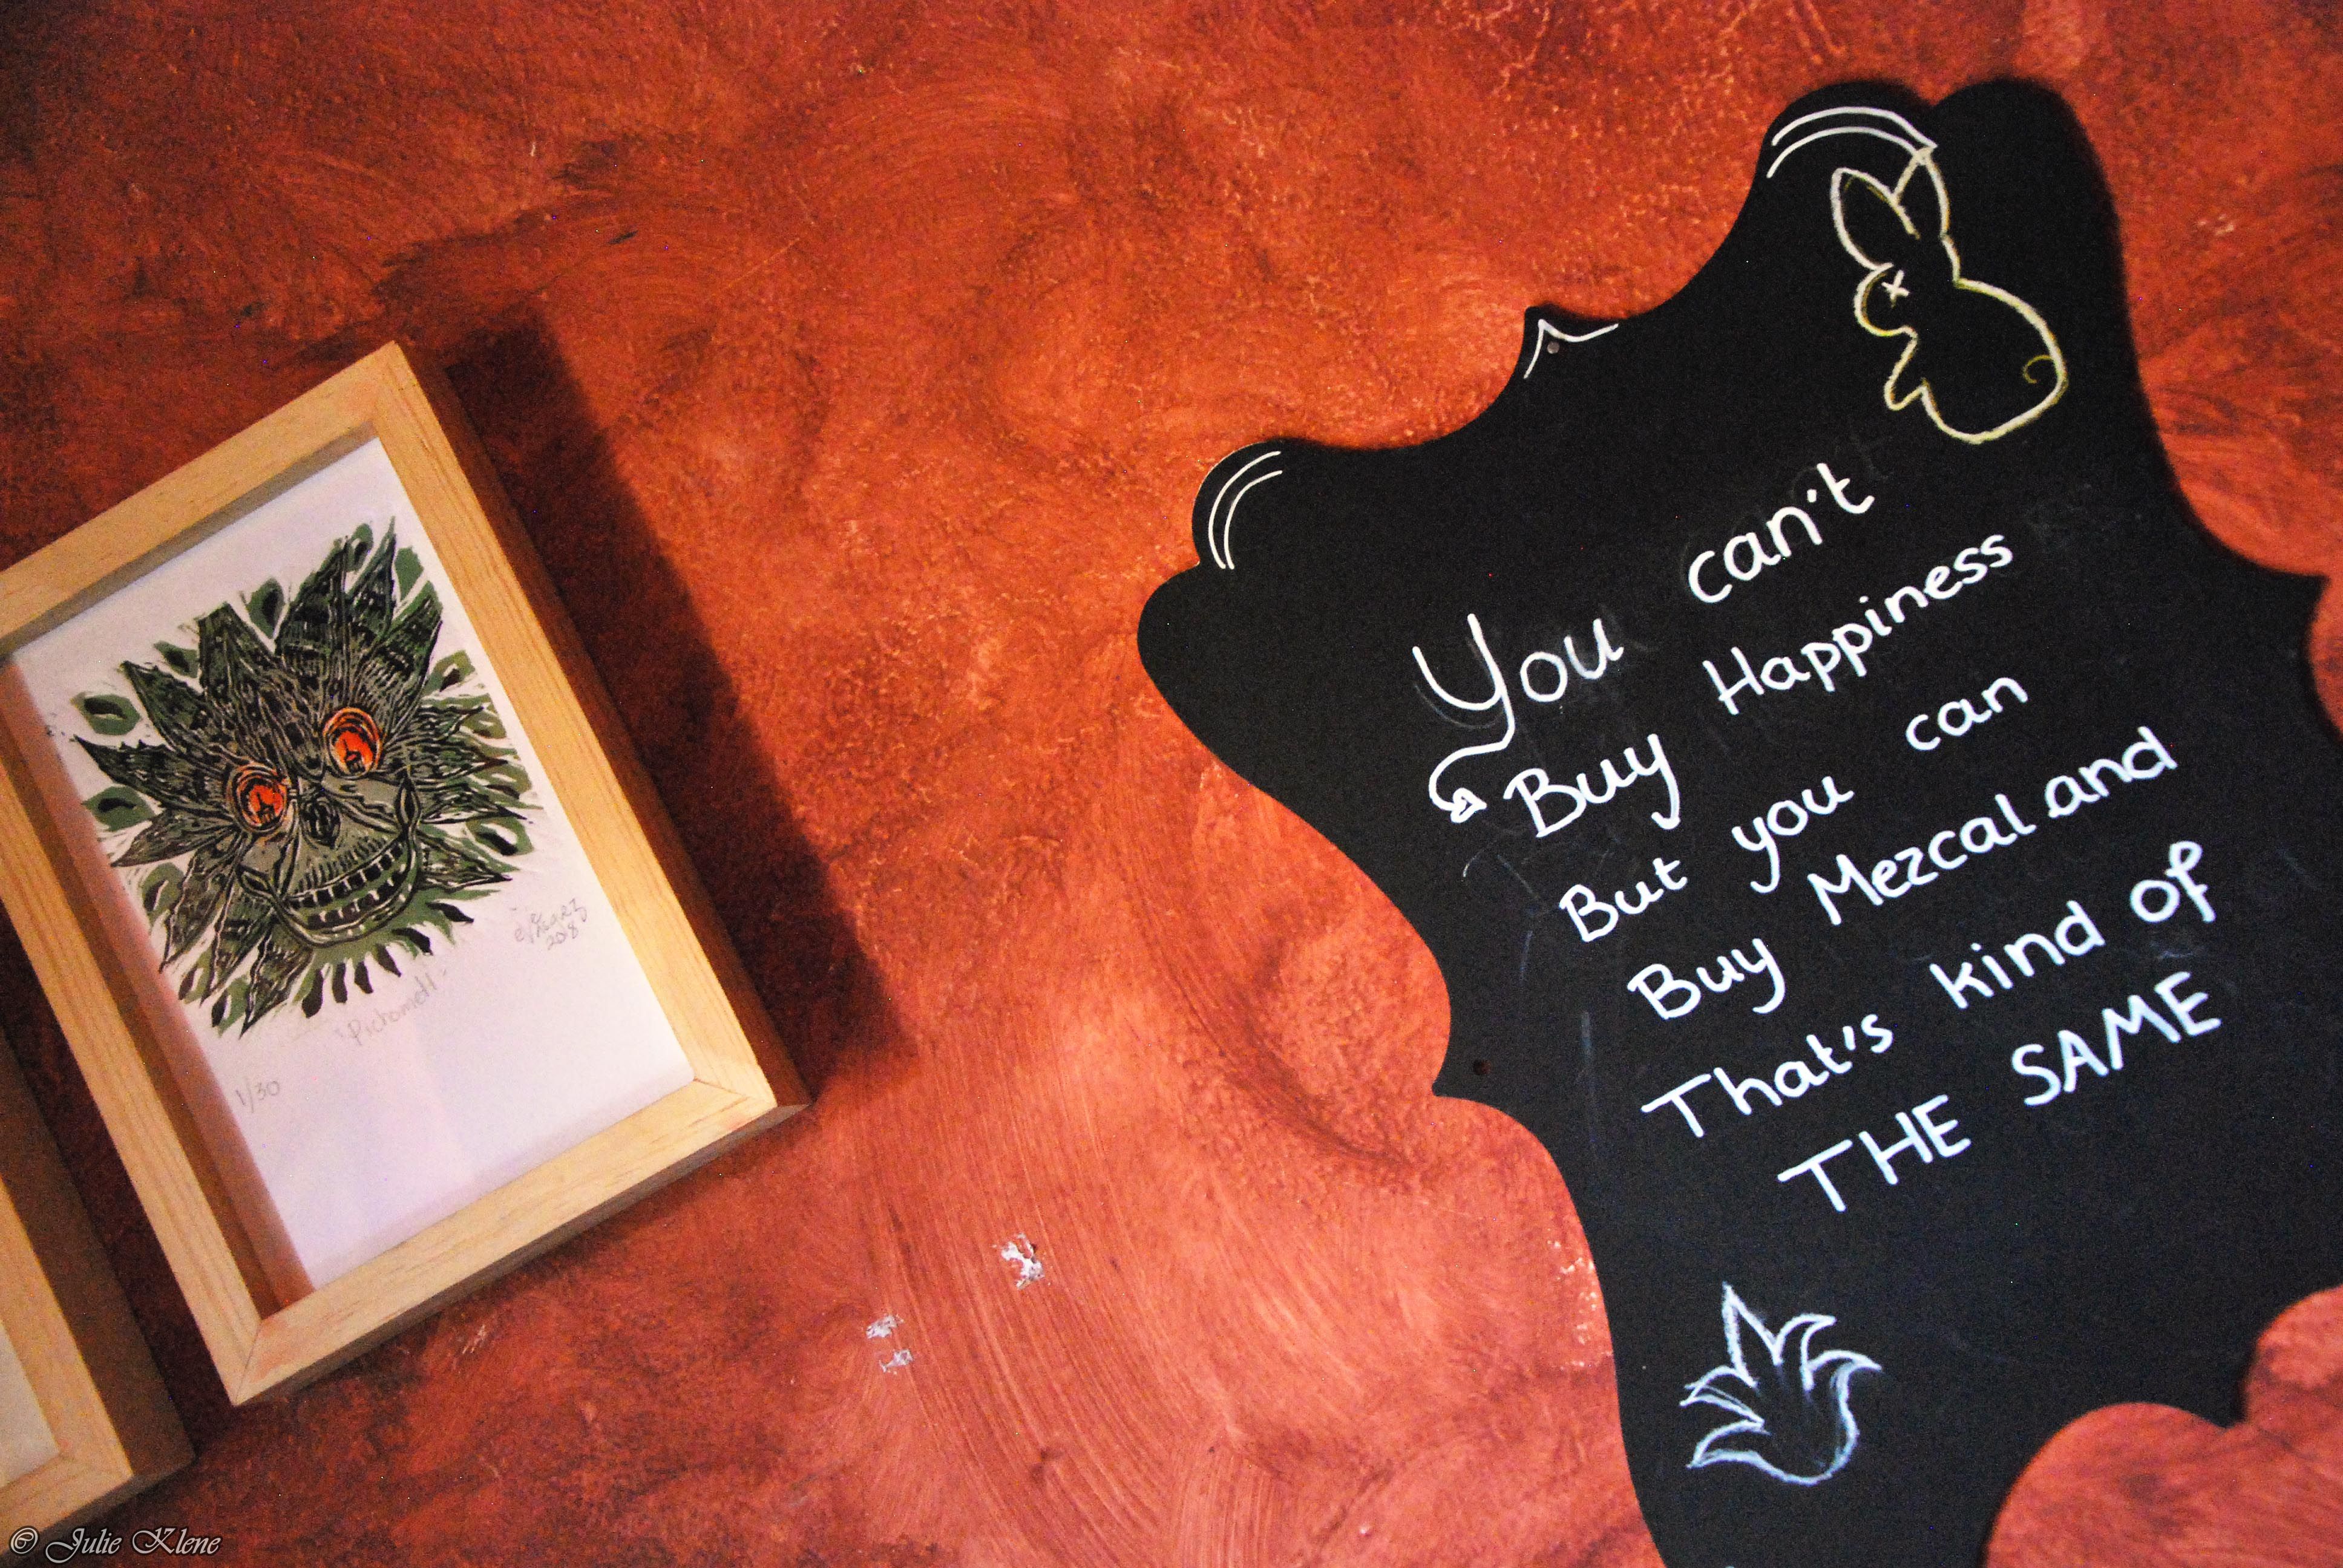 You can't
Buy Happiness
But you can
Buy Mezcal and
That's kind of
THE SAME
2018
1/30
© Julie Klene